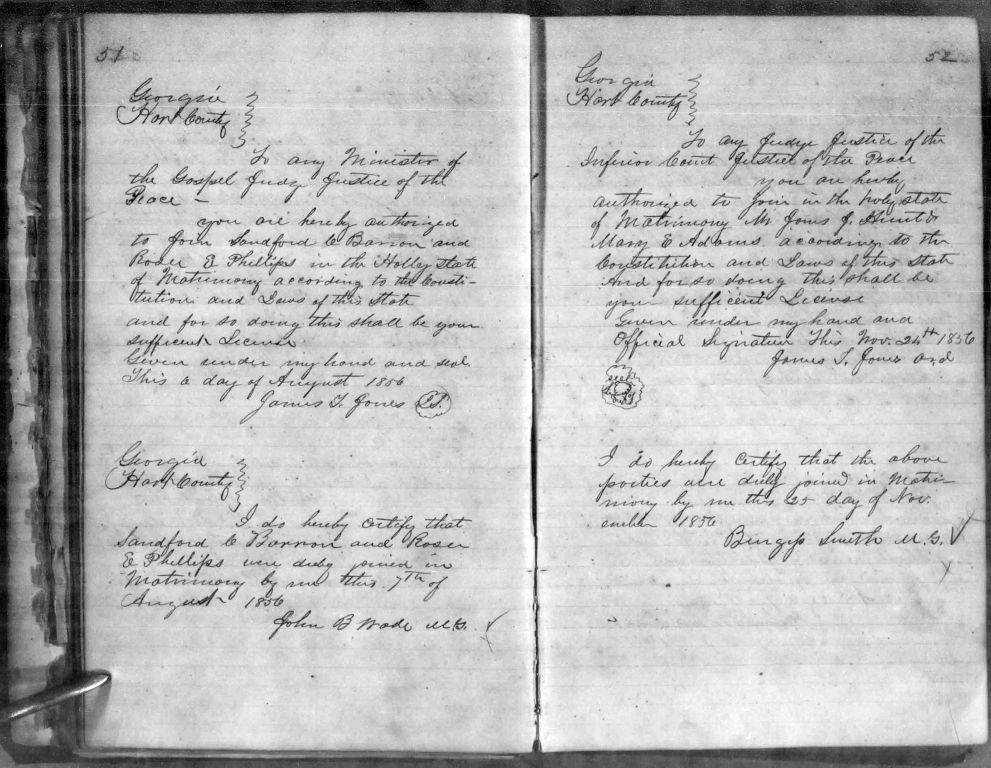 51
Georgia
Hart County
To any Minister of
the Gospel Judge Justice of the
Peace —
you are hereby authorized
to Join Sandford C Barron and
Roser E Phillips in the Holley state
of Matrimony according to the Consti-
tution and Laws of this State
and for so doing this shall be your
sufficient License
Given under my hand and seal
This 6 day of August 1856
James T. Jones L.S.
Georgia
Hart County
I do hereby certify that
Sandford C Barron and Roser
E Phillips were duly joined in
Matrimony by me this 7th of
August 1856
John B Wade M.G.
52
Georgia
Hart County
To any Judge Justice of the
Inferior Court Justice of the Peace
you are hereby
authorized to Join in the holy state
of Matrimony Mr J. Hunt &
Mary E Adams according to the
Constitution and Laws of this State
And for so doing this shall be
your sufficient License
Given under my hand and
Official Signature This Nov. 24th 1856
James T. Jones Ord
I do hereby certify that the above
parties were duly joined in Matri-
mony by me this 25 day of Nov.
ember 1856
Burgess Smith M.G.